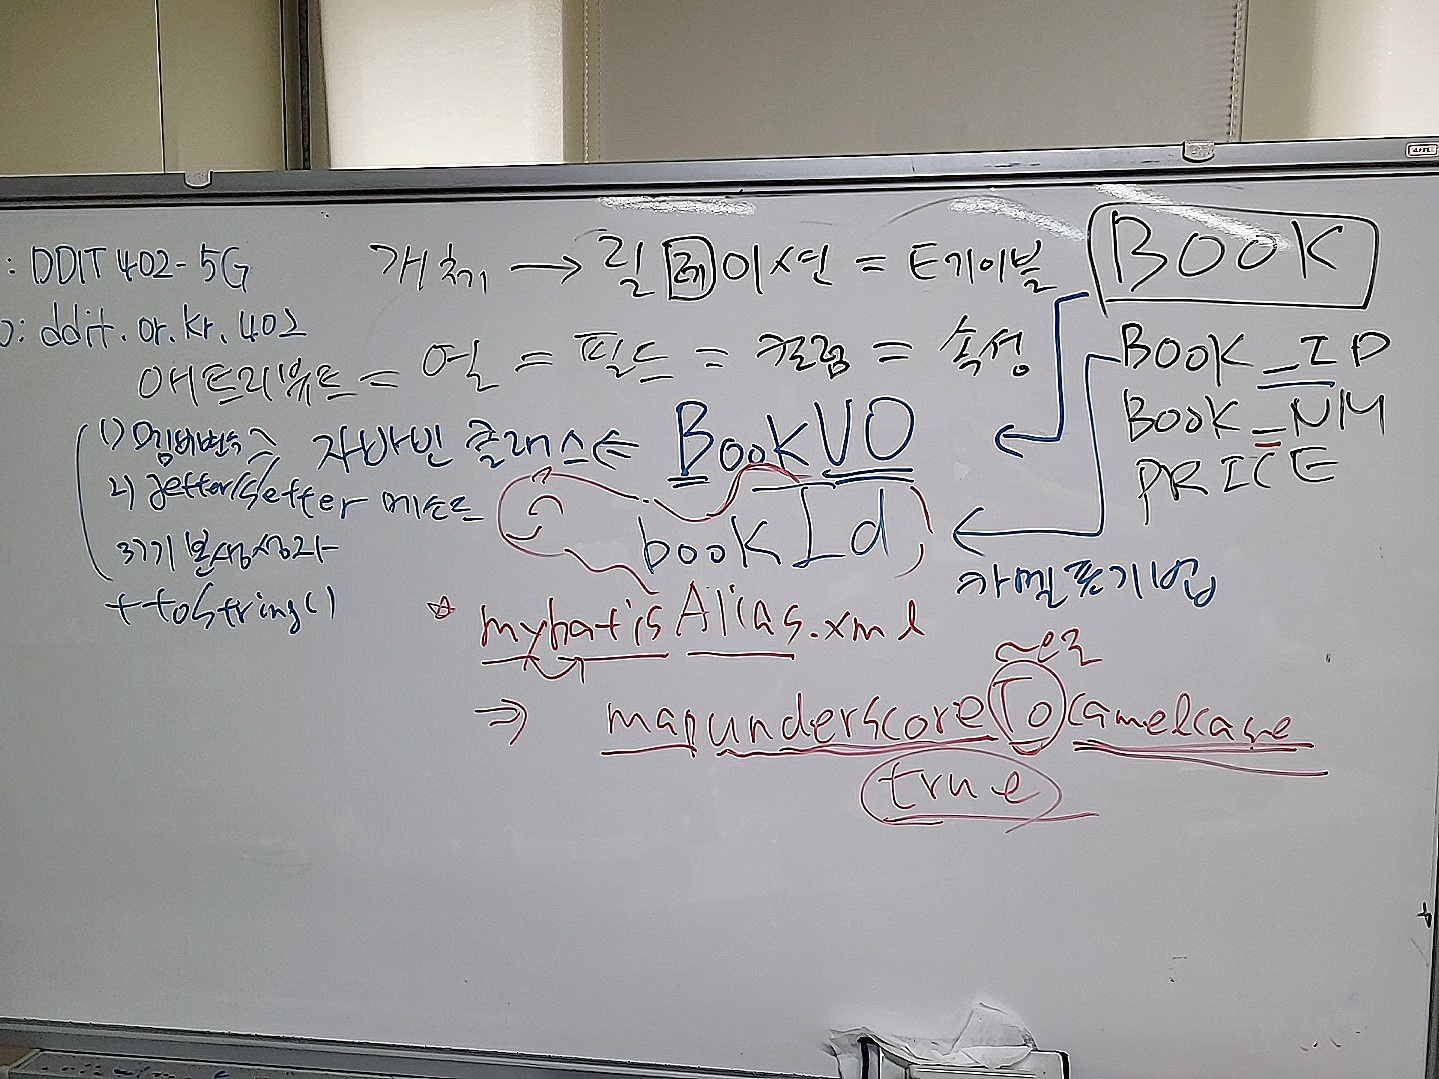 : DDIT 402-5G
개체 → 릴레이션 = 테이블
BOOK
: ddit.or.kr.402
애트리뷰트 = 열 = 필드 = 컬럼 = 속성
BOOK_ID
BOOK_NM
PRICE
1) 멤버변수 ⇒ 자바빈 클래스 ⇐ BookVO
2) getter/setter 메소드
bookId
3) 기본생성자
카멜표기법
+ toString()
☆ mybatisAlias.xml
~으로
⇒ mapunderscoreTocamelcase
true